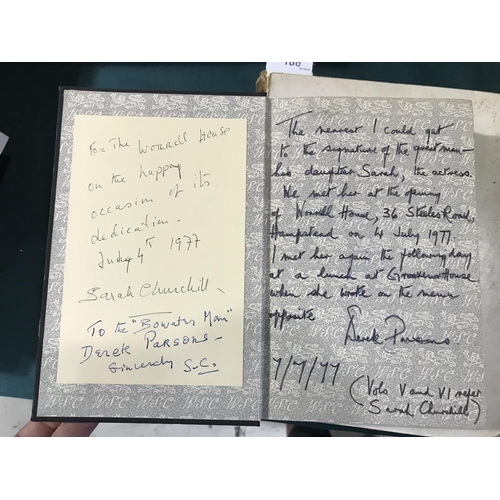 For The Worrell House
on the happy
occasion of its
dedication.
July 4th 1977
Sarah Churchill
To the "Bowater Man"
Derek Parsons -
Sincerely S.C.
The nearest I could get
to the signature of the great man -
his daughter Sarah, the actress.
We met her at the opening
of Worrell House, 36 Steeles Road,
Hampstead on 4 July 1977.
I met her again the following day
at a lunch at Grosvenor House
when she wrote on the menu
opposite
Derek Parsons
7/7/77
(Vols V and VI refer
Sarah Churchill)